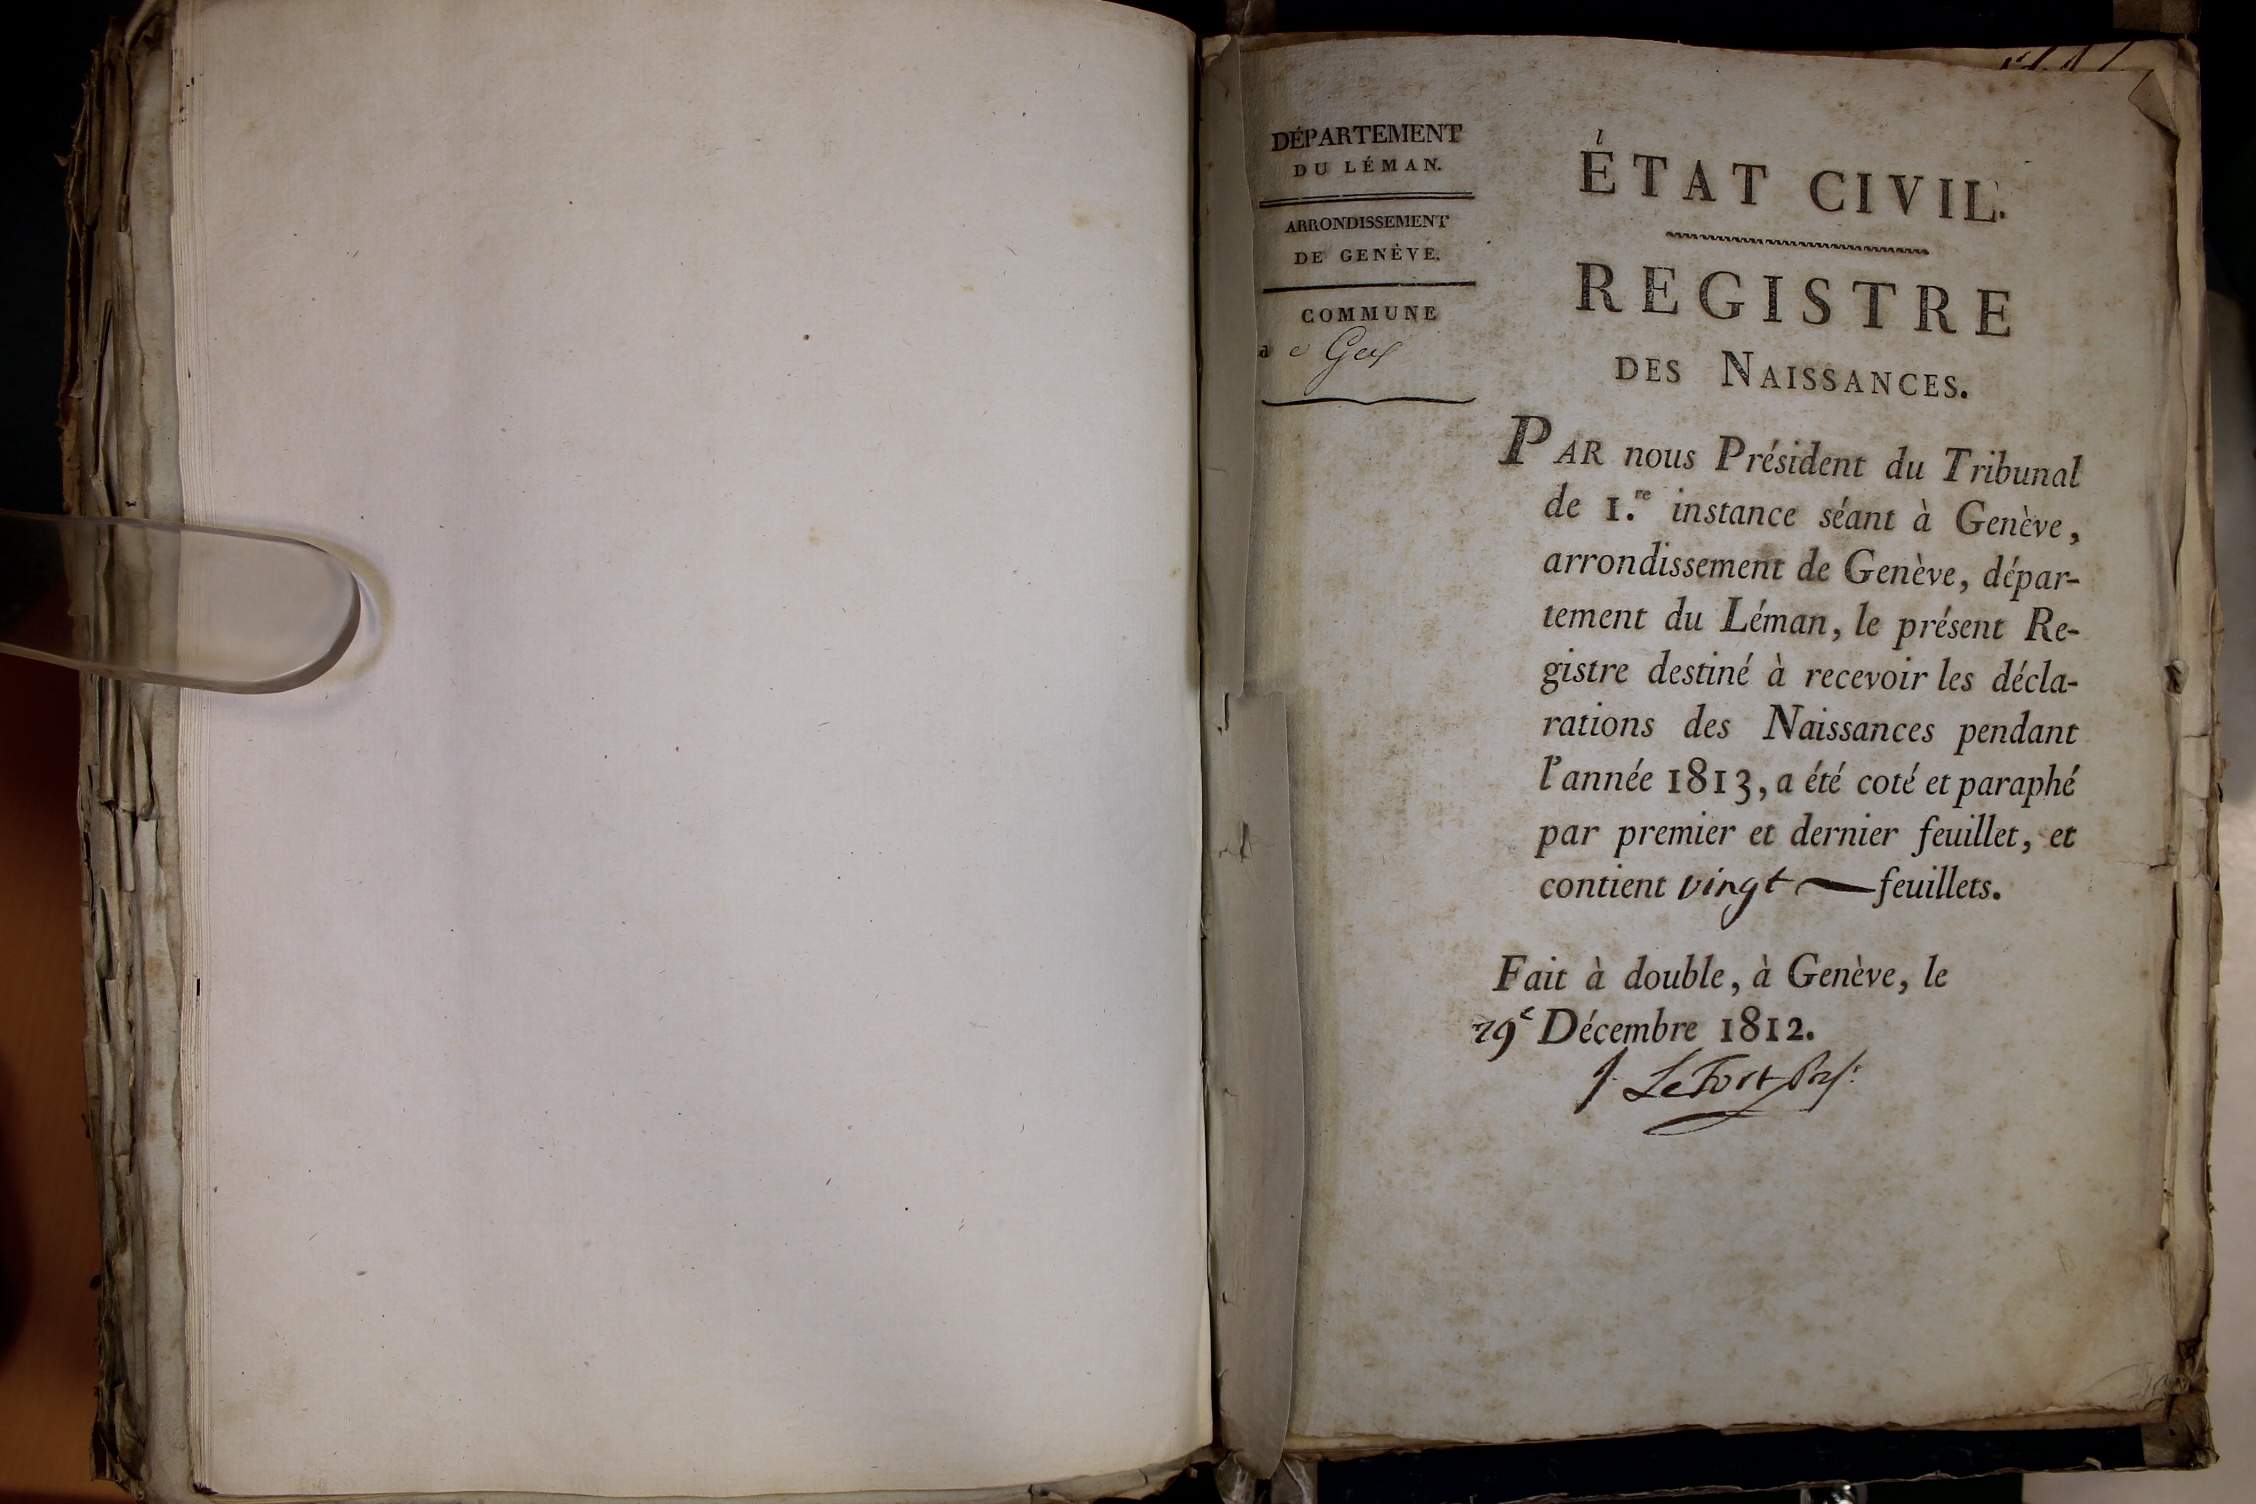 DÉPARTEMENT
DU LÉMAN.
ARRONDISSEMENT
DE GENÈVE.
COMMUNE
de Gex
ÉTAT CIVIL.
REGISTRE
DES NAISSANCES.
PAR nous Président du Tribunal
de 1.re instance séant à Genève,
arrondissement de Genève, dépar-
tement du Léman, le présent Re-
gistre destiné à recevoir les décla-
rations des Naissances pendant
l'année 1813, a été coté et paraphé
par premier et dernier feuillet, et
contient vingt feuillets.
Fait à double, à Genève, le
29e Décembre 1812.
J. LeFort